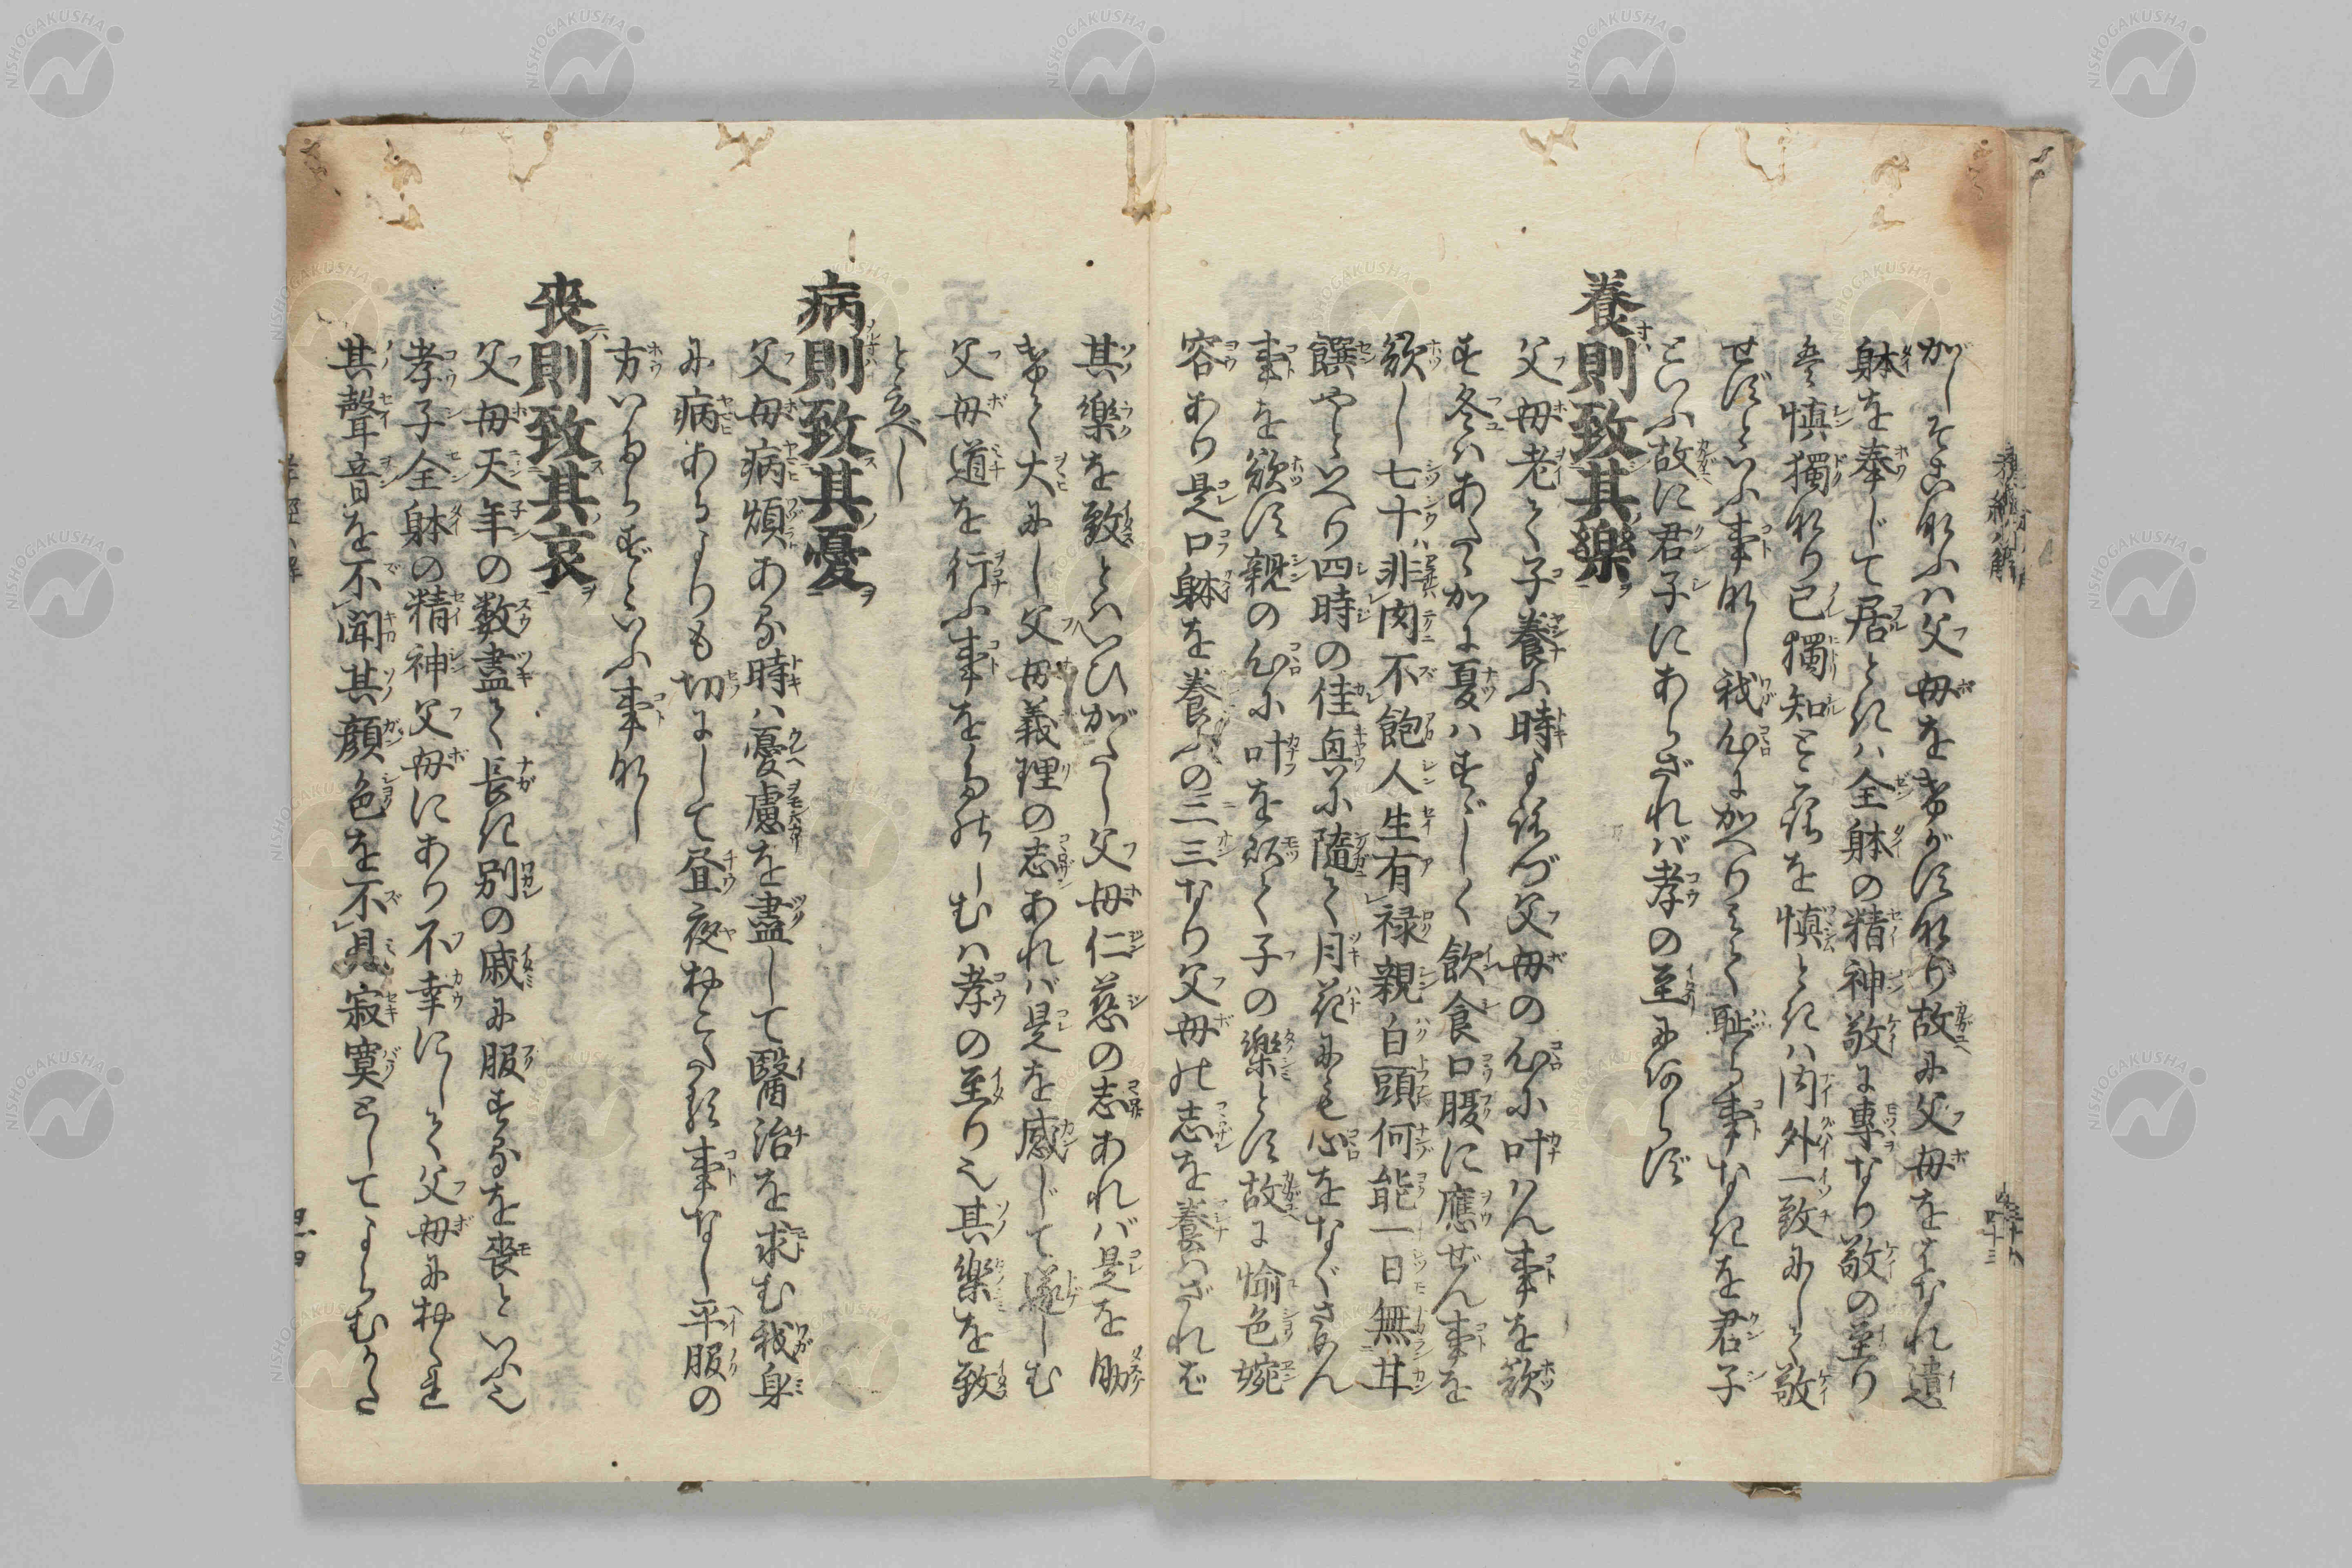 がしそこなふハ父母をけがす也故に父母をはなれ遺
躰を奉じて居ときハ全躰の精神敬に専なり敬の至り
を慎獨なり己獨知ところを慎ときハ内外一致にして敬
せずといふ事なし我心にかへりミて耻る事なきを君子
といふ故に君子にあらざれバ孝の至に何らず
養則致其樂
父母老て子養ふ時よろづ父母の心に叶ハん事を欲
す冬ハあたゝかに夏ハすゞしく飲食口腹に應ぜん事を
欲し七十非肉不飽人生有禄親白頭何能一日無甘
饌やといへり四時の佳興に隨て月花にも心をなぐさめん
事を欲す親の心に叶を以て子の樂とす故に愉色婉
容あり是口躰を養ふの三なり父母の志を養ハざれば
其樂を致とハいひがたし父母仁慈の志あれバ是を助
けて大にし父母義理の志あれバ是を感じて遂しむ
父母道を行ふ事をたのしむハ孝の至り也其樂を致
と云べし
病則致其憂
父母病煩ある時ハ憂慮を盡して醫治を求む我身
に病あるよりも切にして昼夜おこたる事なし平服の
方いたらずといふ事なし
喪則致其哀
父母天年の数盡て長き別の戚に服するを喪といふ也
孝子全躰の精神父母にあり不幸にして父母におくれ
其聲音を不聞其顔色を不見寂寞としてよらむかた